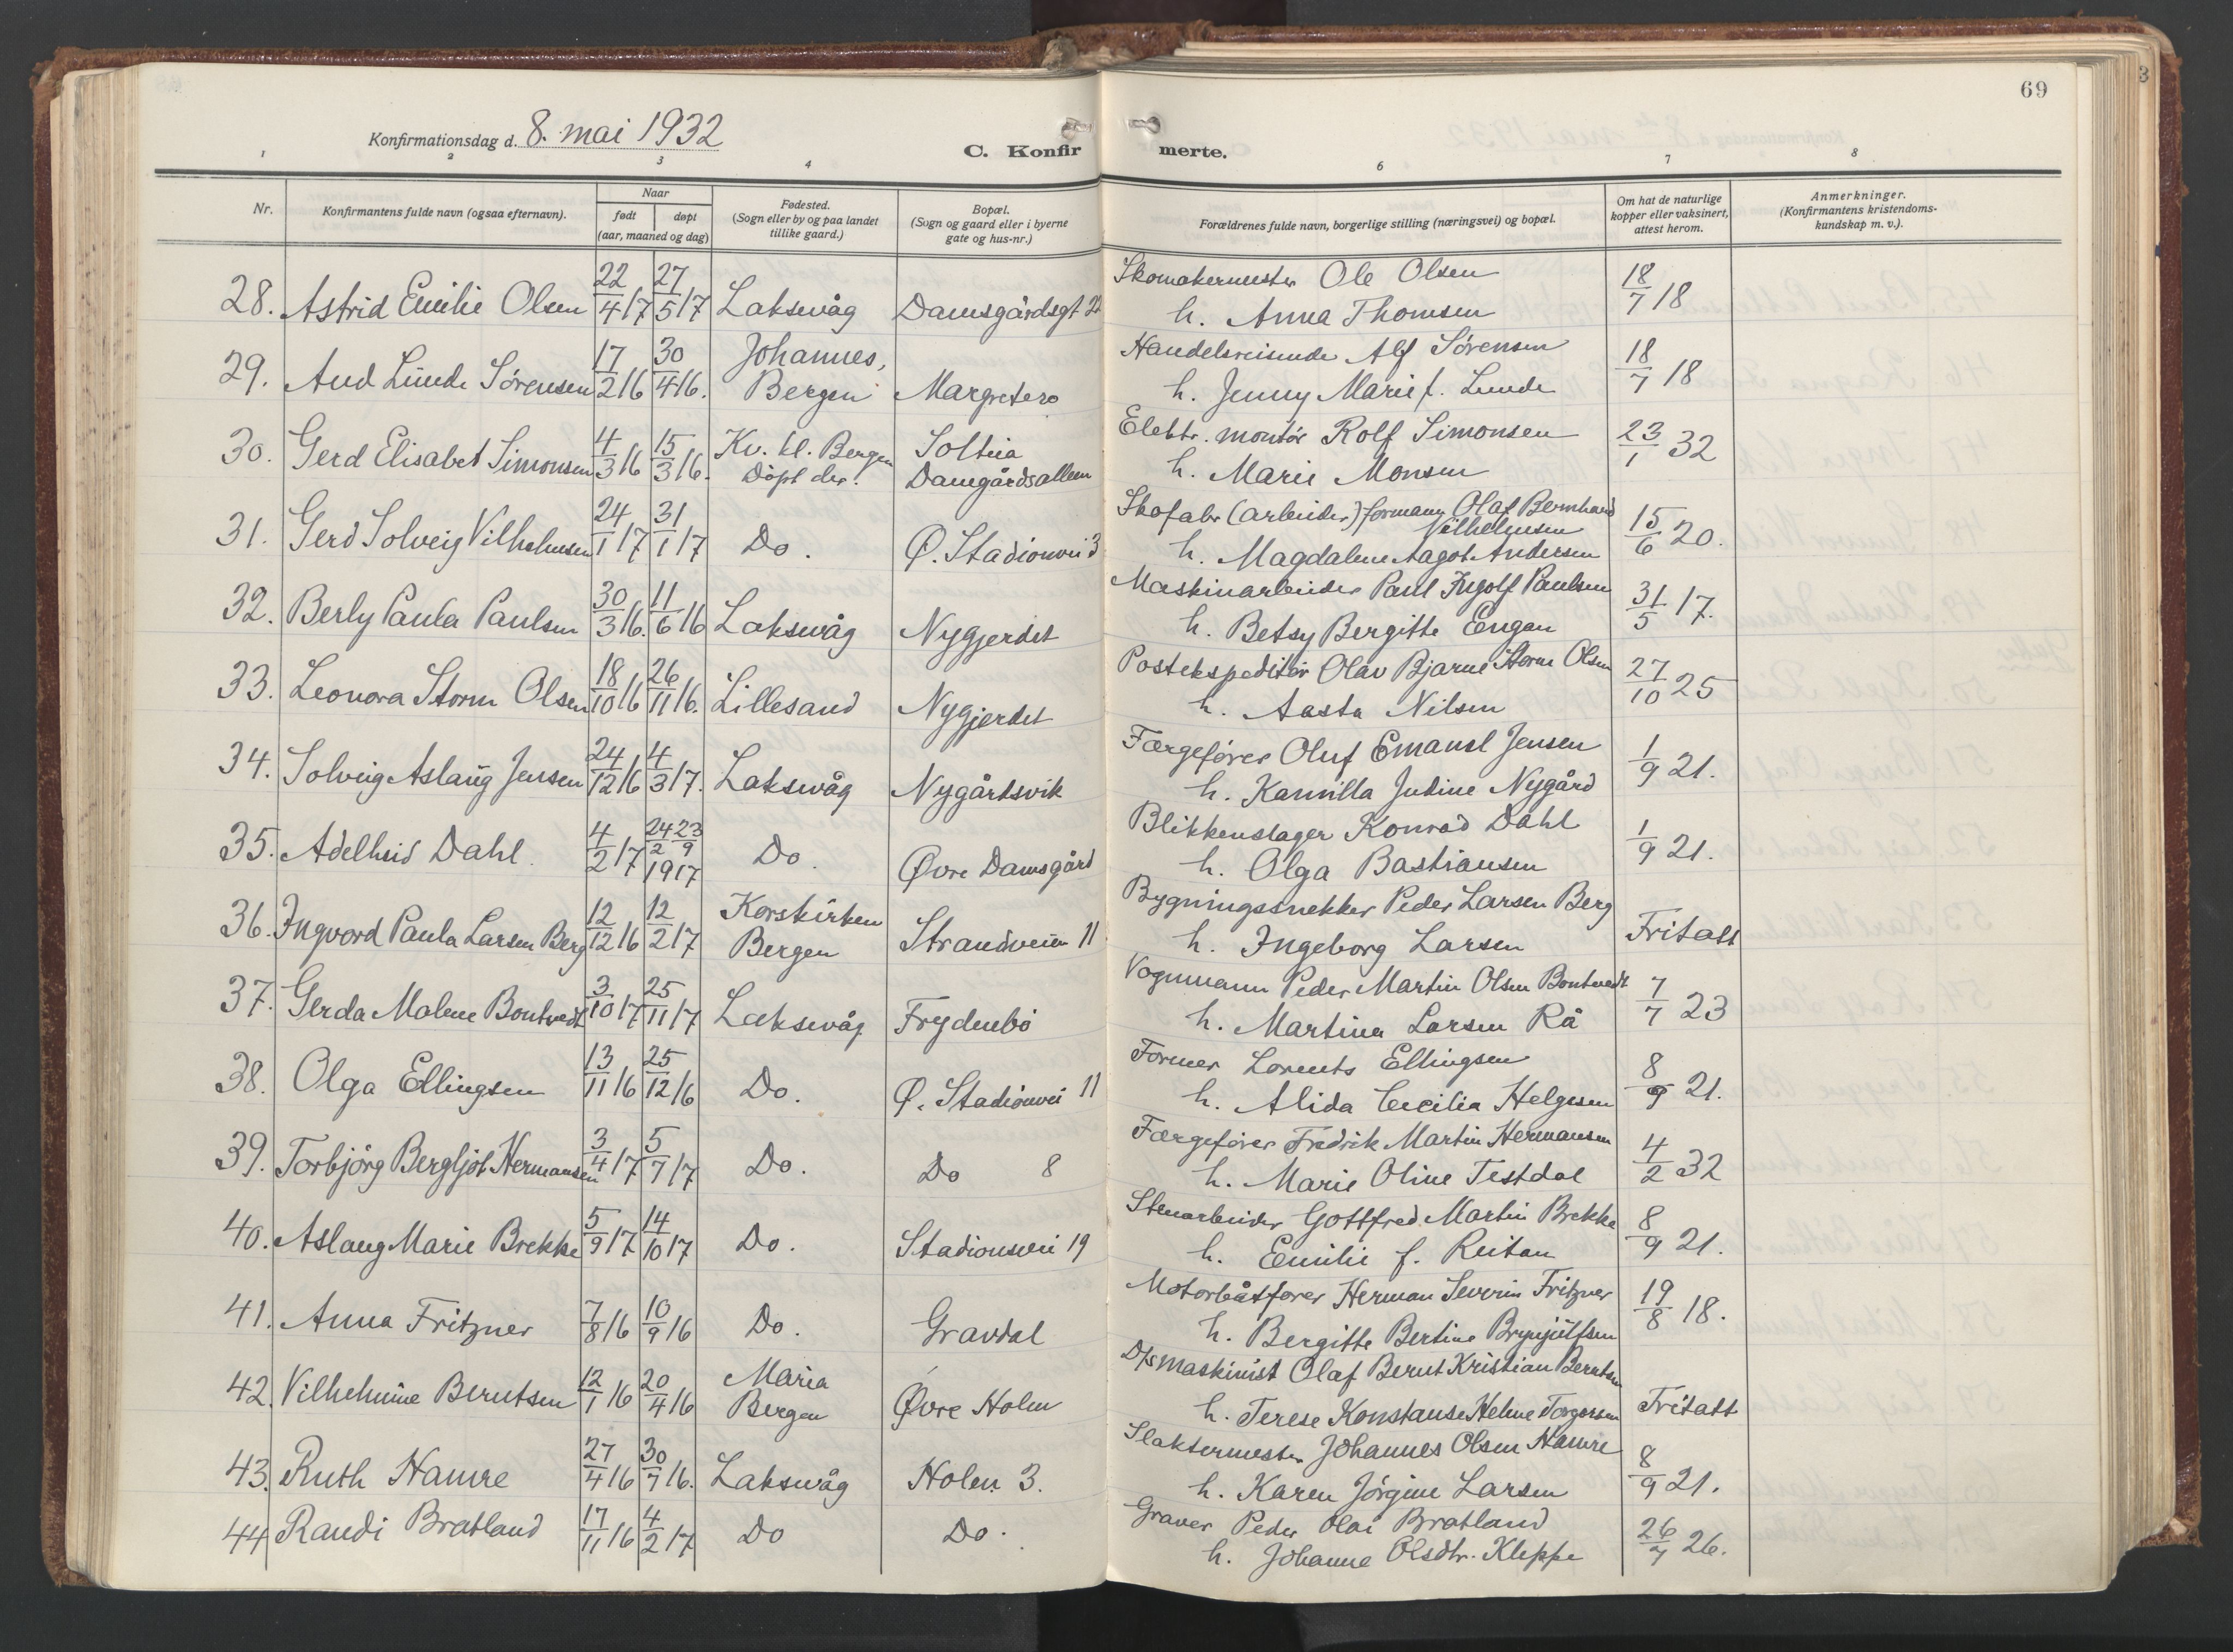 69
3
Konfirmationsdag d. 8. mai 1932
C. Konfir merte.
1 2 3 4 6 7 8
Nr.
Konfirmantens fulde navn (ogsaa efternavn).
Naar
født døpt
(aar, maaned og dag)
Fødested.
(Sogn eller by og paa landet
tillike gaard.)
Bopæl.
(Sogn og gaard eller i byerne
gate og hus-nr.)
Forældrenes fulde navn, borgerlige stilling (næringsvei) og bopæl.
Om hat de naturlige
kopper eller vaksinert,
attest herom.
Anmerkninger.
(Konfirmantens kristendoms-
kundskap m. v.).
28. Astrid Emilie Olsen 22/4 17 27/5 17 Laksevåg Damsgårdsgt Skomakermester Ole Olsen
h. Anna Thomsen 18/7 18
29. Aud Lunde Sørensen 17/2 16 30/4 16. Johannes,
Bergen Margretero Handelsreisende Alf Sørensen
h. Jenny Marie f. Lunde 18/7 18
30. Gerd Elisabet Simonsen 4/3 16 15/3 16. Kv. kl. Bergen
Døpt der. Soltria
Damgårdsalleen Elektr. montør Rolf Simonsen
h. Marie Monsen 23/1 32
31. Gerd Solveig Vilhelmsen 24/1 17 31/1 17 Do. Ø. Stadionvei 3 Skofabr (arbeider) formann Olaf Bernhard
Vilhelmsen
h. Magdalene Aagot Andersen 15/6 20.
32. Berly Paula Paulsen 30/3 16. 11/6 16 Laksevåg Nygjerdet Maskinarbeider Paul Ingolf Paulsen
h. Betsy Bergitte Engan 31/5 17.
33. Leonora Storm Olsen 18/10 16 26/11 16. Lillesand Nygjerdet Postekspeditør Olav Bjarne Storm Olsen
h. Aasta Nilsen 27/10 25
34. Solveig Aslaug Jensen 24/12 16 4/3 17. Laksevåg Nygårdsvik Færgefører Oluf Emanuel Jensen
h. Kamilla Judine Nygård 1/9 21.
35. Adelheid Dahl. 4/2 17 24/2 23/9 1917 Do. Øvre Damsgård Blikkenslager Konrad Dahl
h. Olga Bastiansen 1/9 21.
36. Ingvord Paula Larsen Berg 12/12 16 12/2 17 Korskirken
Bergen Strandveien 11 Bygningssnekker Peder Larsen Berg
h. Ingeborg Larsen Fritatt
37. Gerda Malene Bontvedt 3/10 17 25/11 17 Laksevåg Frydenbø Vognmann Peder Martin Olsen Bontvedt
h. Martina Larsen Rå 7/7 23
38. Olga Ellingsen 13/11 16 25/12 16 Do. Ø. Stadionvei 11 Former Lorents Ellingsen
h. Alida Cecilia Helgesen 8/9 21.
39. Torbjørg Bergljot Hermansen 3/4 17 5/7 17 Do. Do 8 Færgefører Fredrik Martin Hermansen
h. Marie Oline Testdal 4/2 32
40. Aslaug Marie Brekke 5/9 17 14/10 17 Do. Stadionsvei 19 Stenarbeider Gottfred Martin Brekke
h. Emilie f. Reitan 8/9 21.
41. Anna Fritzner 7/8 16 10/9 16 Do. Gravdal Motorbåtfører Herman Severin Fritzner
h. Bergitte Bertine Brynjulfsen 19/8 18.
42. Vilhelmine Berntsen 12/1 16 20/4 16 Maria
Bergen Øvre Holen D/s maskinist Olaf Bernt Kristian Berntsen
h. Terese Konstanse Helene Torgersen Fritatt
43. Ruth Hamre 27/4 16 30/7 16. Laksevåg Holen 3. Slaktermester Johannes Olsen Hamre
h. Karen Jørgine Larsen 8/9 21.
44 Randi Bratland 17/11 16 4/2 17 Do Do. Graver Peder Olai Bratland
h. Johanne Olsdtr. Kleppe 26/7 26.